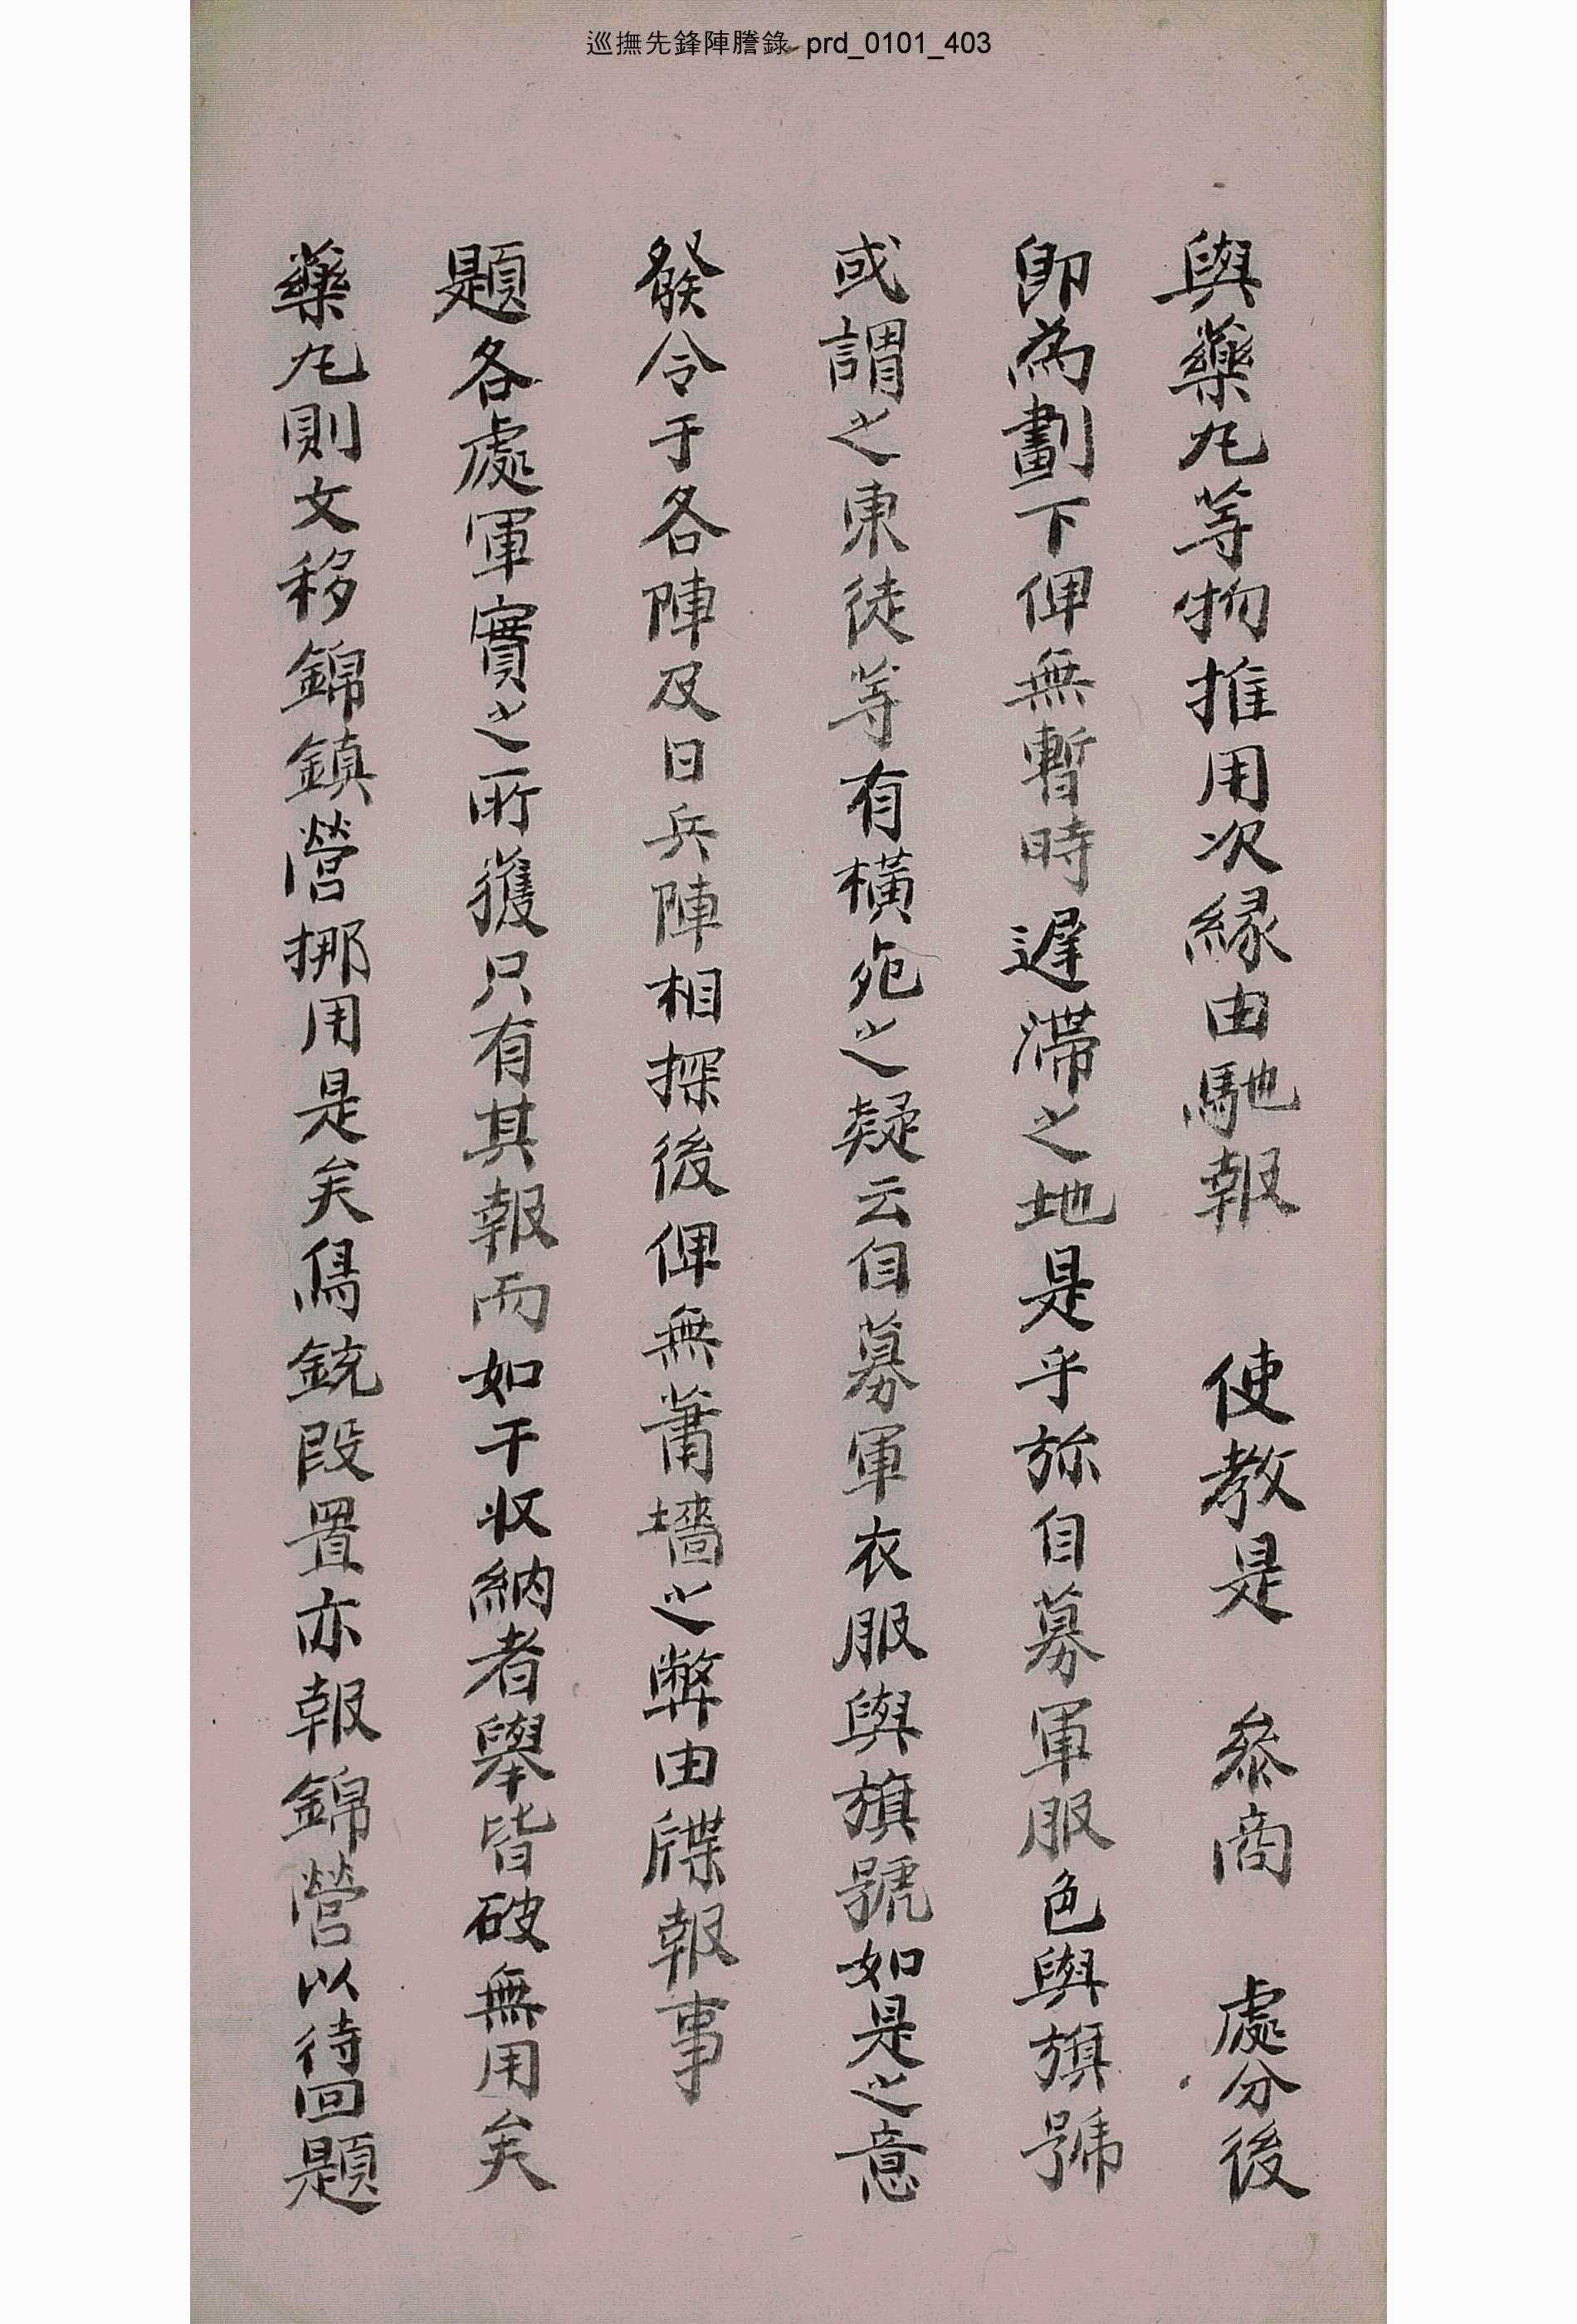 巡撫先鋒陣謄錄 prd_0101_403
與藥丸等物推用次緣由馳報 使教是 叅商 處分後
卽為劃下俾無暫時遲滯之地是乎旀自募軍服色與旗號
或謂之東徒等有橫死之疑云自募軍衣服與旗號如是之意
發令于各陣及日兵陣相探後俾無蕭墻之弊由牒報事
題各處軍實之所獲只有其報而如干收納者擧皆破無用矣
藥丸則文移錦鎭營挪用是矣鳥銃段置亦報錦營以待回題